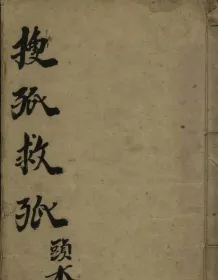 搜孤救孤
頭本